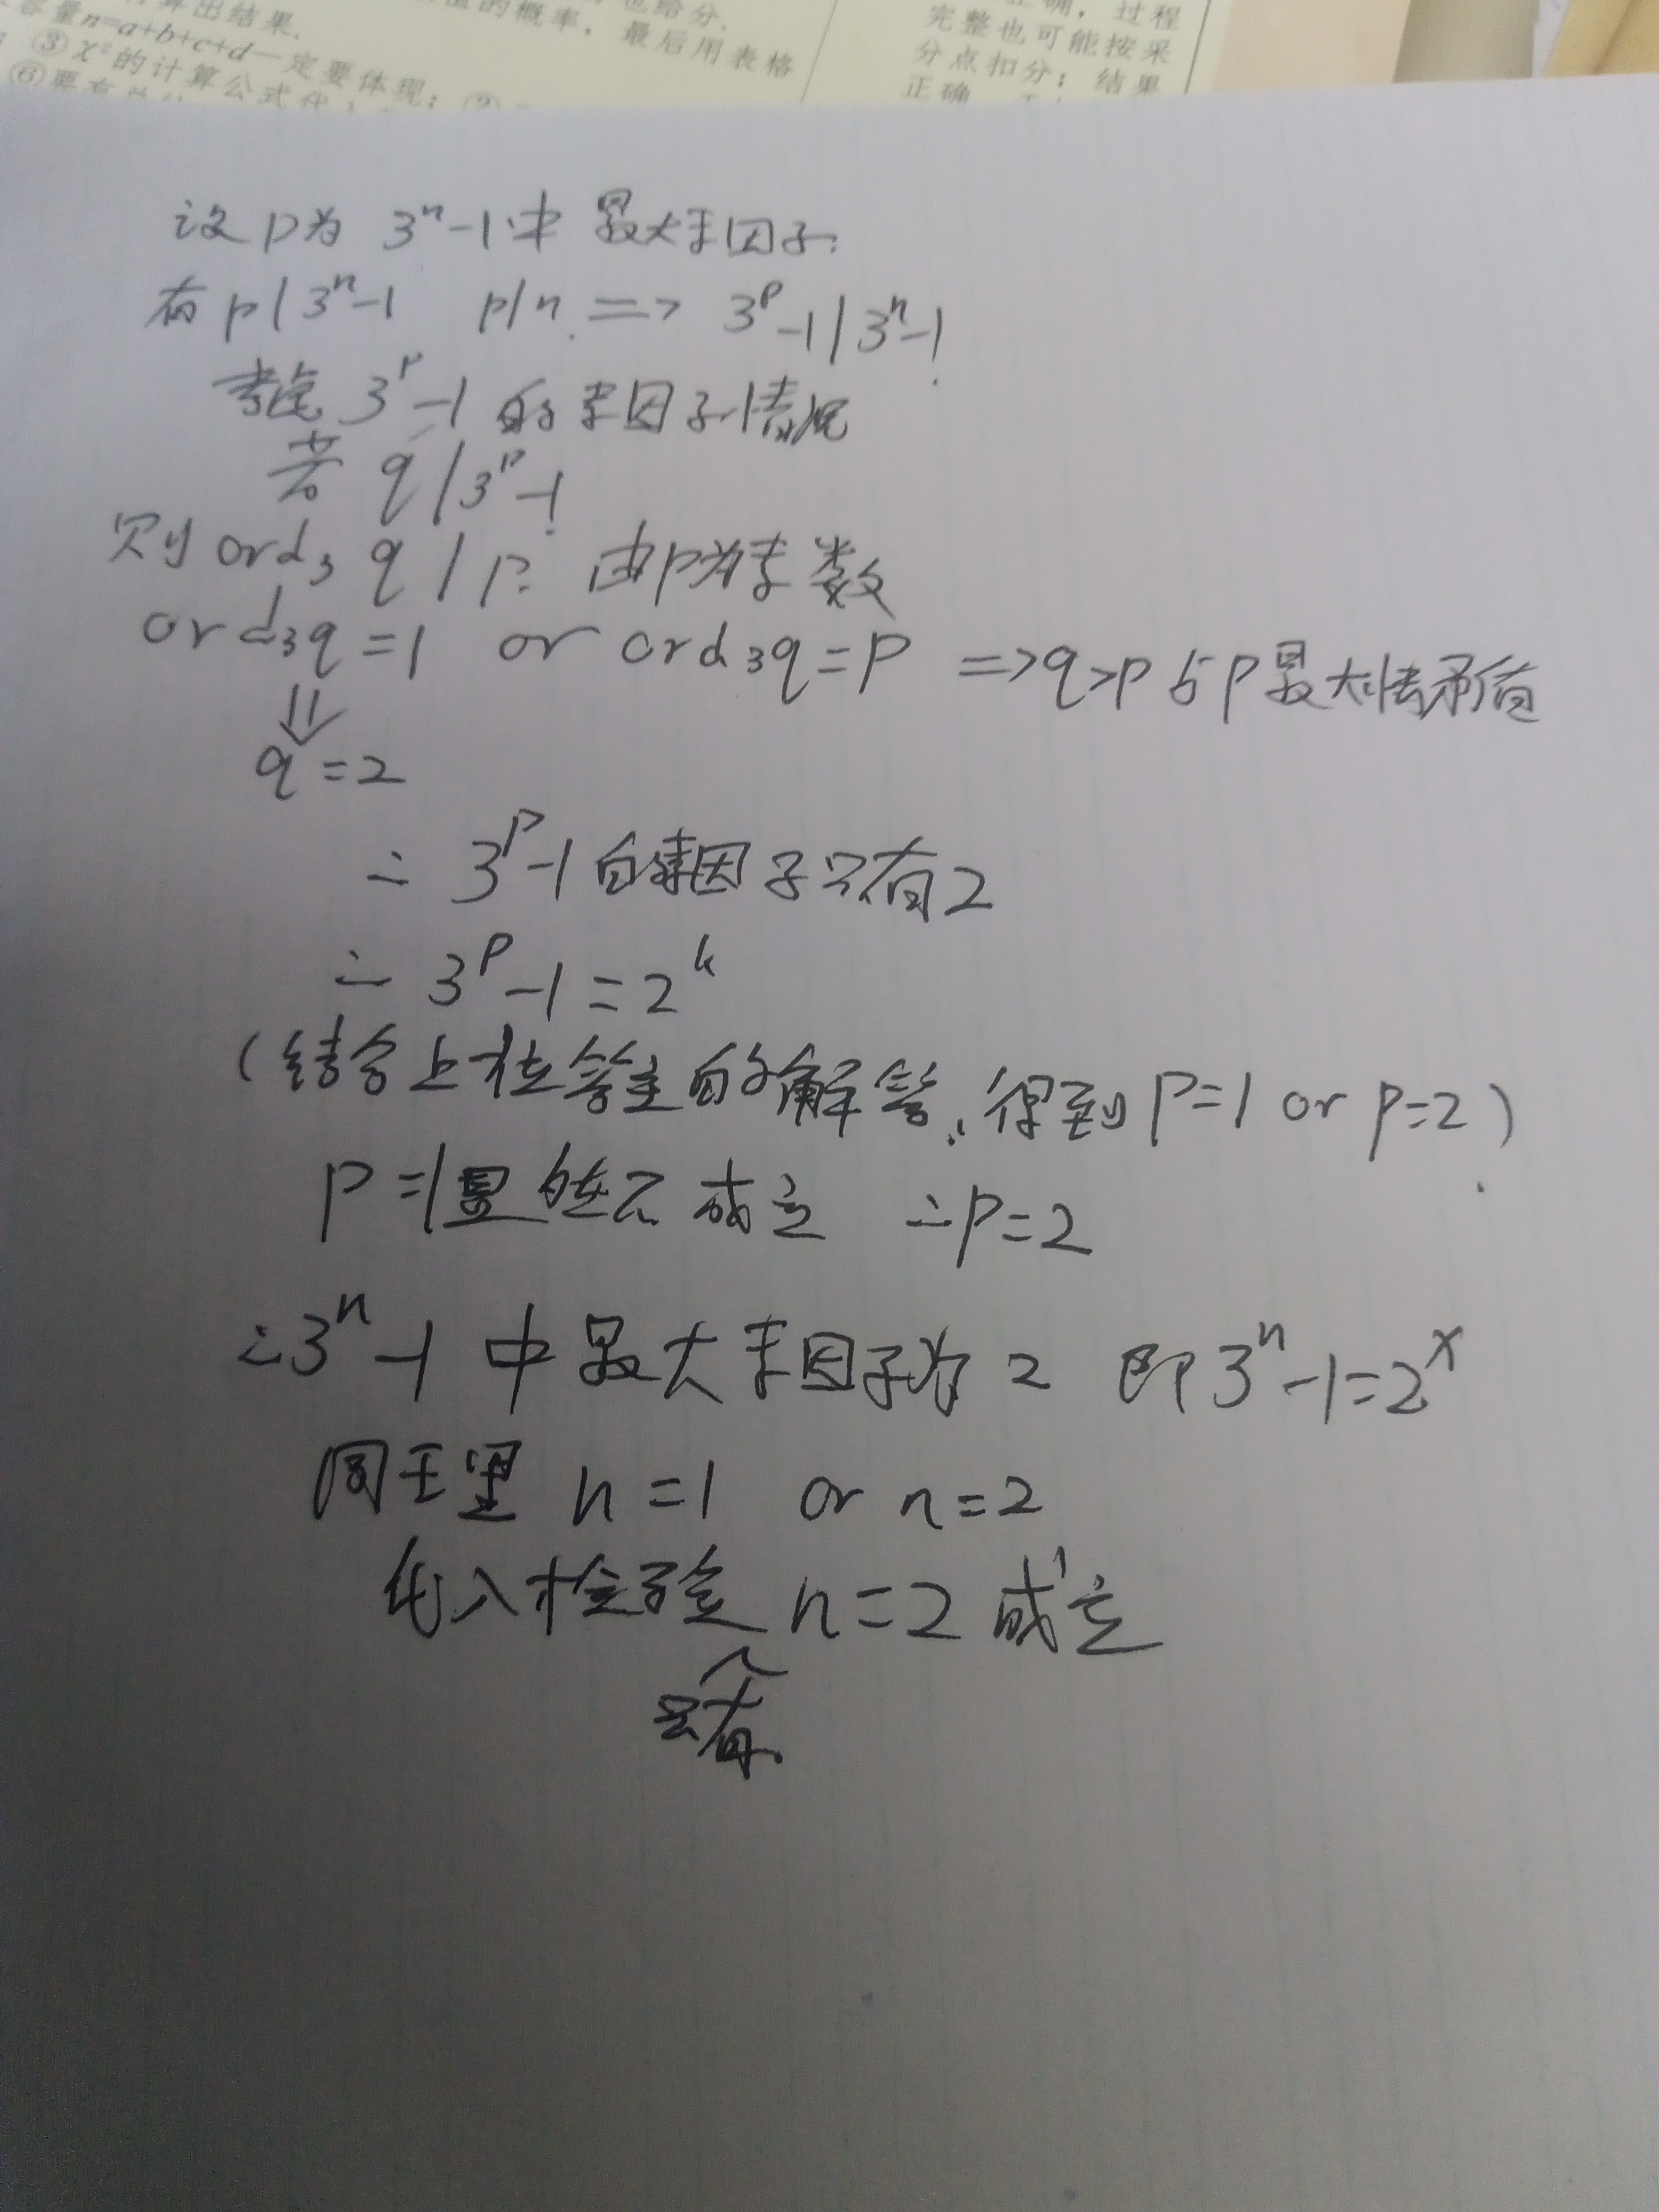 算出结果.
也给分.
的概率，最后用表格
容量n=a+b+c+d一定要体现；
③χ²的计算公式代
正确，过程
完整也可能按采
分点扣分；结果
正确
设p为 3ⁿ-1中 最大素因子.
有 p|3ⁿ-1 p|n. => 3ᵖ-1|3ⁿ-1
考虑 3ᵖ-1 的素因子情况
若 q|3ᵖ-1
则 ord₃ q | p. 由p为素数
ord₃q=1 or ord₃q=p =>q>p 与p最大性矛盾
⇓
q=2
∴ 3ᵖ-1的素因子只有2
∴ 3ᵖ-1=2ᵏ
(结合上一位答主的解答,得到p=1 or p=2)
p=1显然不成立 ∴p=2
∴3ⁿ-1 中最大素因子为2 即3ⁿ-1=2ˣ
同理 n=1 or n=2
代入检验 n=2 成立
只有